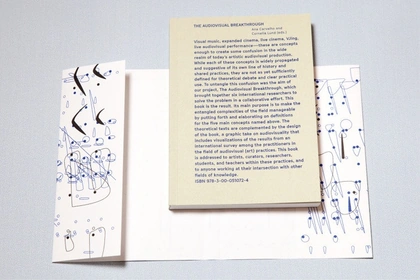 THE AUDIOVISUAL BREAKTHROUGH
Ana Carvalho and
Cornelia Lund (eds.)
Visual music, expanded cinema, live cinema, VJing,
live audiovisual performance—these are concepts
enough to create some confusion in the wide
realm of today's artistic audiovisual production.
While each of these concepts is widely propagated
and suggestive of its own line of history and
shared practices, they are not as yet sufficiently
defined for theoretical debate and clear practical
use. To untangle this confusion was the aim of
our project, The Audiovisual Breakthrough, which
brought together six international researchers to
solve the problem in a collaborative effort. This
book is the result. As main purpose is to make the
entangled complexities of the field manageable
by putting forth and elaborating on definitions
for the five main concepts named above. The
theoretical texts are complemented by the design
of the book, a graphic take on audiovisuality that
includes visualizations of the results from an
international survey among the practitioners in
the field of audiovisual (art) practices. This book
is addressed to artists, curators, researchers,
students, and teachers within these practices, and
to anyone working at their intersection with other
fields of knowledge.
ISBN 978-3-00-051072-4